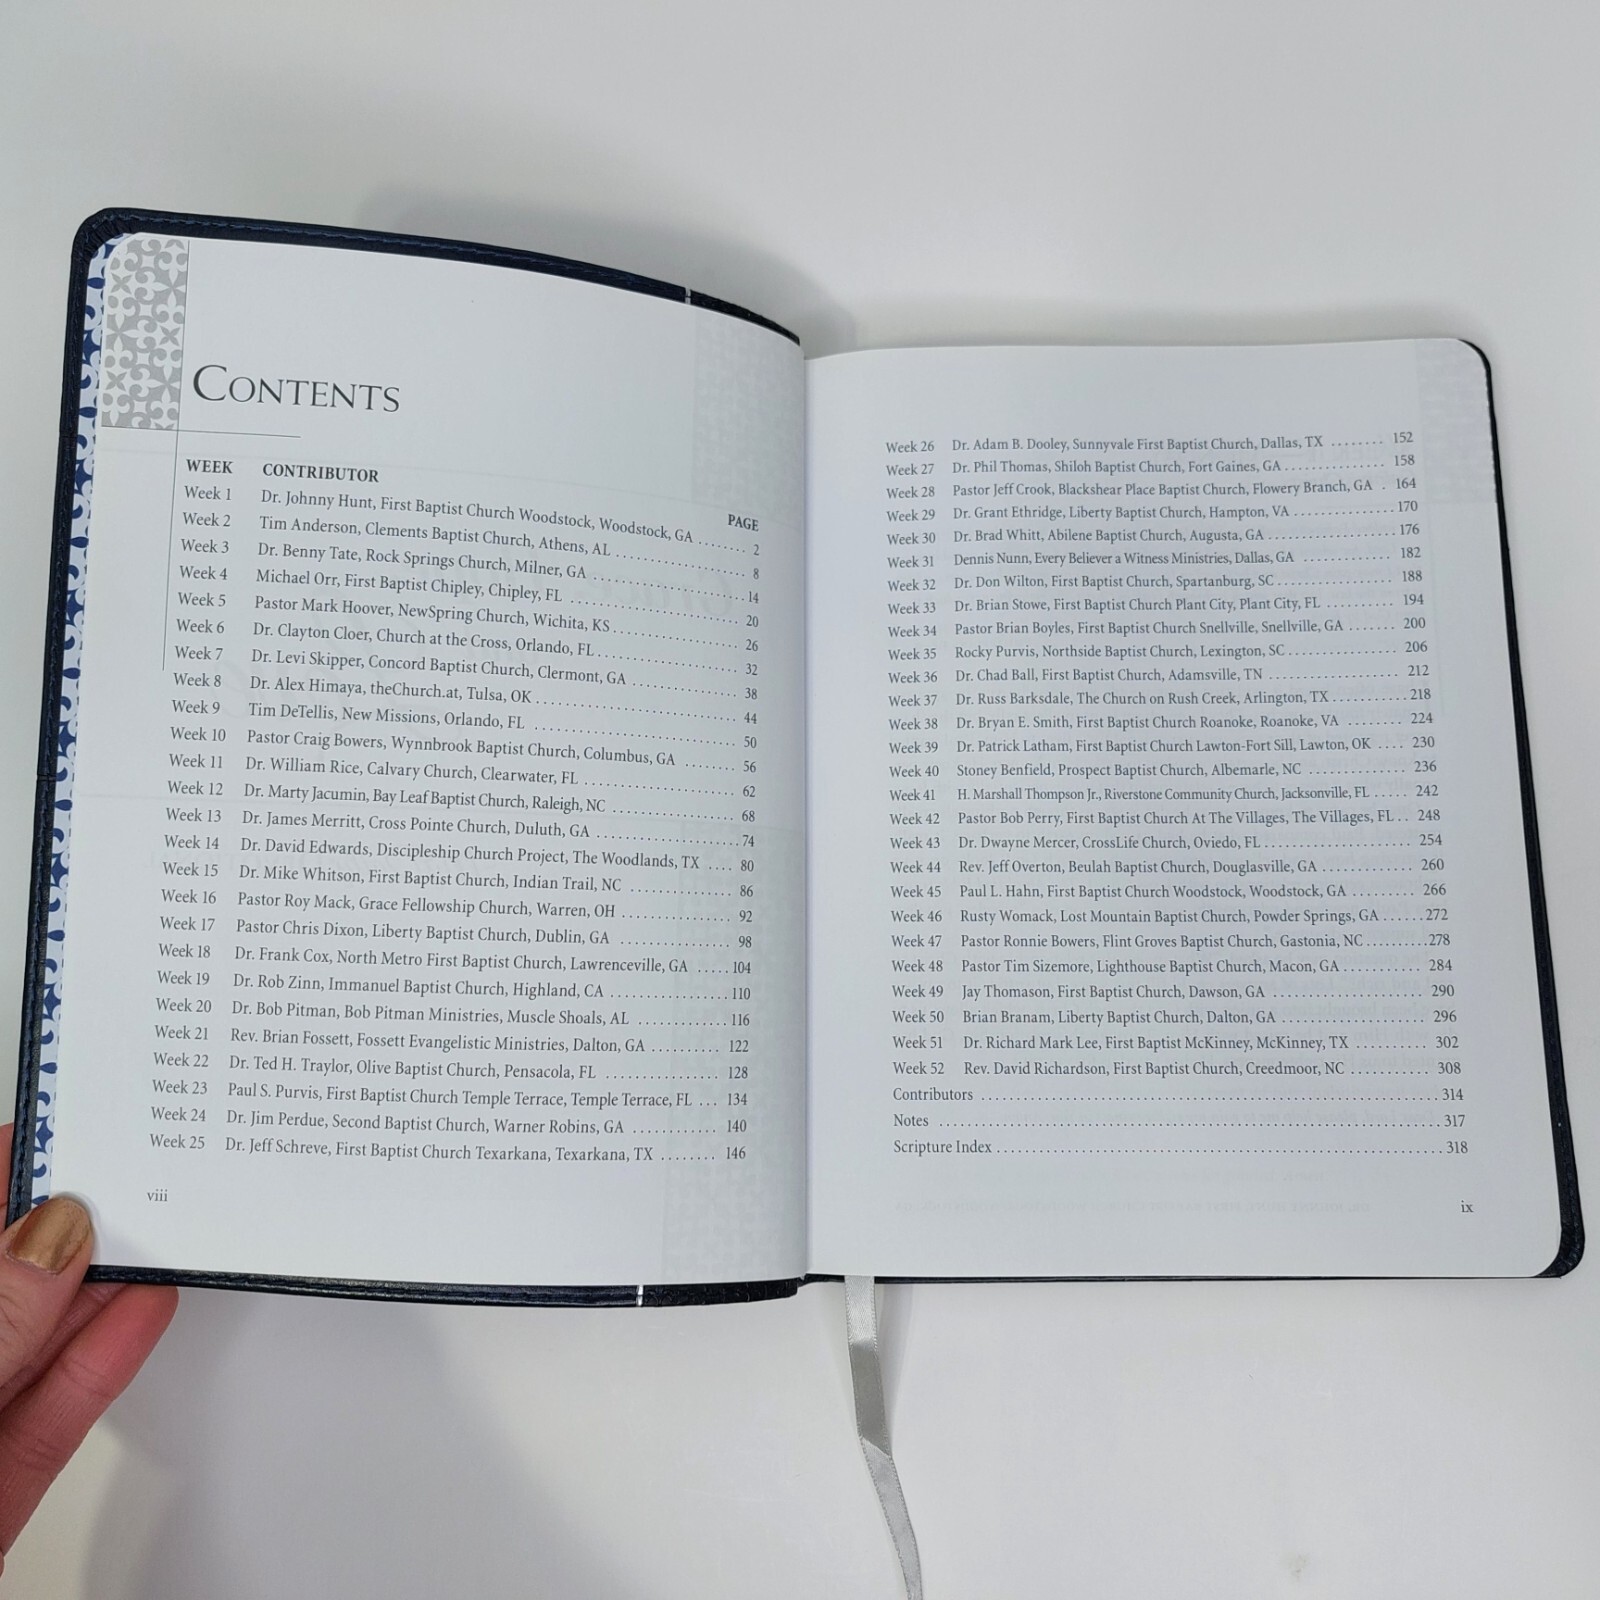 CONTENTS
WEEK CONTRIBUTOR PAGE
Week 1 Dr. Johnny Hunt, First Baptist Church Woodstock, Woodstock, GA ........ 2
Week 2 Tim Anderson, Clements Baptist Church, Athens, AL ........ 8
Week 3 Dr. Benny Tate, Rock Springs Church, Milner, GA ........ 14
Week 4 Michael Orr, First Baptist Chipley, Chipley, FL ........ 20
Week 5 Pastor Mark Hoover, NewSpring Church, Wichita, KS ........ 26
Week 6 Dr. Clayton Cloer, Church at the Cross, Orlando, FL ........ 32
Week 7 Dr. Levi Skipper, Concord Baptist Church, Clermont, GA ........ 38
Week 8 Dr. Alex Himaya, theChurch.at, Tulsa, OK ........ 44
Week 9 Tim DeTellis, New Missions, Orlando, FL ........ 50
Week 10 Pastor Craig Bowers, Wynnbrook Baptist Church, Columbus, GA ........ 56
Week 11 Dr. William Rice, Calvary Church, Clearwater, FL ........ 62
Week 12 Dr. Marty Jacumin, Bay Leaf Baptist Church, Raleigh, NC ........ 68
Week 13 Dr. James Merritt, Cross Pointe Church, Duluth, GA ........ 74
Week 14 Dr. David Edwards, Discipleship Church Project, The Woodlands, TX .... 80
Week 15 Dr. Mike Whitson, First Baptist Church, Indian Trail, NC ........ 86
Week 16 Pastor Roy Mack, Grace Fellowship Church, Warren, OH ........ 92
Week 17 Pastor Chris Dixon, Liberty Baptist Church, Dublin, GA ........ 98
Week 18 Dr. Frank Cox, North Metro First Baptist Church, Lawrenceville, GA ..... 104
Week 19 Dr. Rob Zinn, Immanuel Baptist Church, Highland, CA ........ 110
Week 20 Dr. Bob Pitman, Bob Pitman Ministries, Muscle Shoals, AL ........ 116
Week 21 Rev. Brian Fossett, Fossett Evangelistic Ministries, Dalton, GA ........ 122
Week 22 Dr. Ted H. Traylor, Olive Baptist Church, Pensacola, FL ........ 128
Week 23 Paul S. Purvis, First Baptist Church Temple Terrace, Temple Terrace, FL ... 134
Week 24 Dr. Jim Perdue, Second Baptist Church, Warner Robins, GA ........ 140
Week 25 Dr. Jeff Schreve, First Baptist Church Texarkana, Texarkana, TX ........ 146
viii
Week 26 Dr. Adam B. Dooley, Sunnyvale First Baptist Church, Dallas, TX ........ 152
Week 27 Dr. Phil Thomas, Shiloh Baptist Church, Fort Gaines, GA ........ 158
Week 28 Pastor Jeff Crook, Blackshear Place Baptist Church, Flowery Branch, GA . 164
Week 29 Dr. Grant Ethridge, Liberty Baptist Church, Hampton, VA ........ 170
Week 30 Dr. Brad Whitt, Abilene Baptist Church, Augusta, GA ........ 176
Week 31 Dennis Nunn, Every Believer a Witness Ministries, Dallas, GA ........ 182
Week 32 Dr. Don Wilton, First Baptist Church, Spartanburg, SC ........ 188
Week 33 Dr. Brian Stowe, First Baptist Church Plant City, Plant City, FL ........ 194
Week 34 Pastor Brian Boyles, First Baptist Church Snellville, Snellville, GA ....... 200
Week 35 Rocky Purvis, Northside Baptist Church, Lexington, SC ........ 206
Week 36 Dr. Chad Ball, First Baptist Church, Adamsville, TN ........ 212
Week 37 Dr. Russ Barksdale, The Church on Rush Creek, Arlington, TX ........ 218
Week 38 Dr. Bryan E. Smith, First Baptist Church Roanoke, Roanoke, VA ........ 224
Week 39 Dr. Patrick Latham, First Baptist Church Lawton-Fort Sill, Lawton, OK .... 230
Week 40 Stoney Benfield, Prospect Baptist Church, Albemarle, NC ........ 236
Week 41 H. Marshall Thompson Jr., Riverstone Community Church, Jacksonville, FL ..... 242
Week 42 Pastor Bob Perry, First Baptist Church At The Villages, The Villages, FL .. 248
Week 43 Dr. Dwayne Mercer, CrossLife Church, Oviedo, FL ........ 254
Week 44 Rev. Jeff Overton, Beulah Baptist Church, Douglasville, GA ........ 260
Week 45 Paul L. Hahn, First Baptist Church Woodstock, Woodstock, GA ........ 266
Week 46 Rusty Womack, Lost Mountain Baptist Church, Powder Springs, GA ...... 272
Week 47 Pastor Ronnie Bowers, Flint Groves Baptist Church, Gastonia, NC ........ 278
Week 48 Pastor Tim Sizemore, Lighthouse Baptist Church, Macon, GA ........ 284
Week 49 Jay Thomason, First Baptist Church, Dawson, GA ........ 290
Week 50 Brian Branam, Liberty Baptist Church, Dalton, GA ........ 296
Week 51 Dr. Richard Mark Lee, First Baptist McKinney, McKinney, TX ........ 302
Week 52 Rev. David Richardson, First Baptist Church, Creedmoor, NC ........ 308
Contributors ........ 314
Notes ........ 317
Scripture Index ........ 318
ix